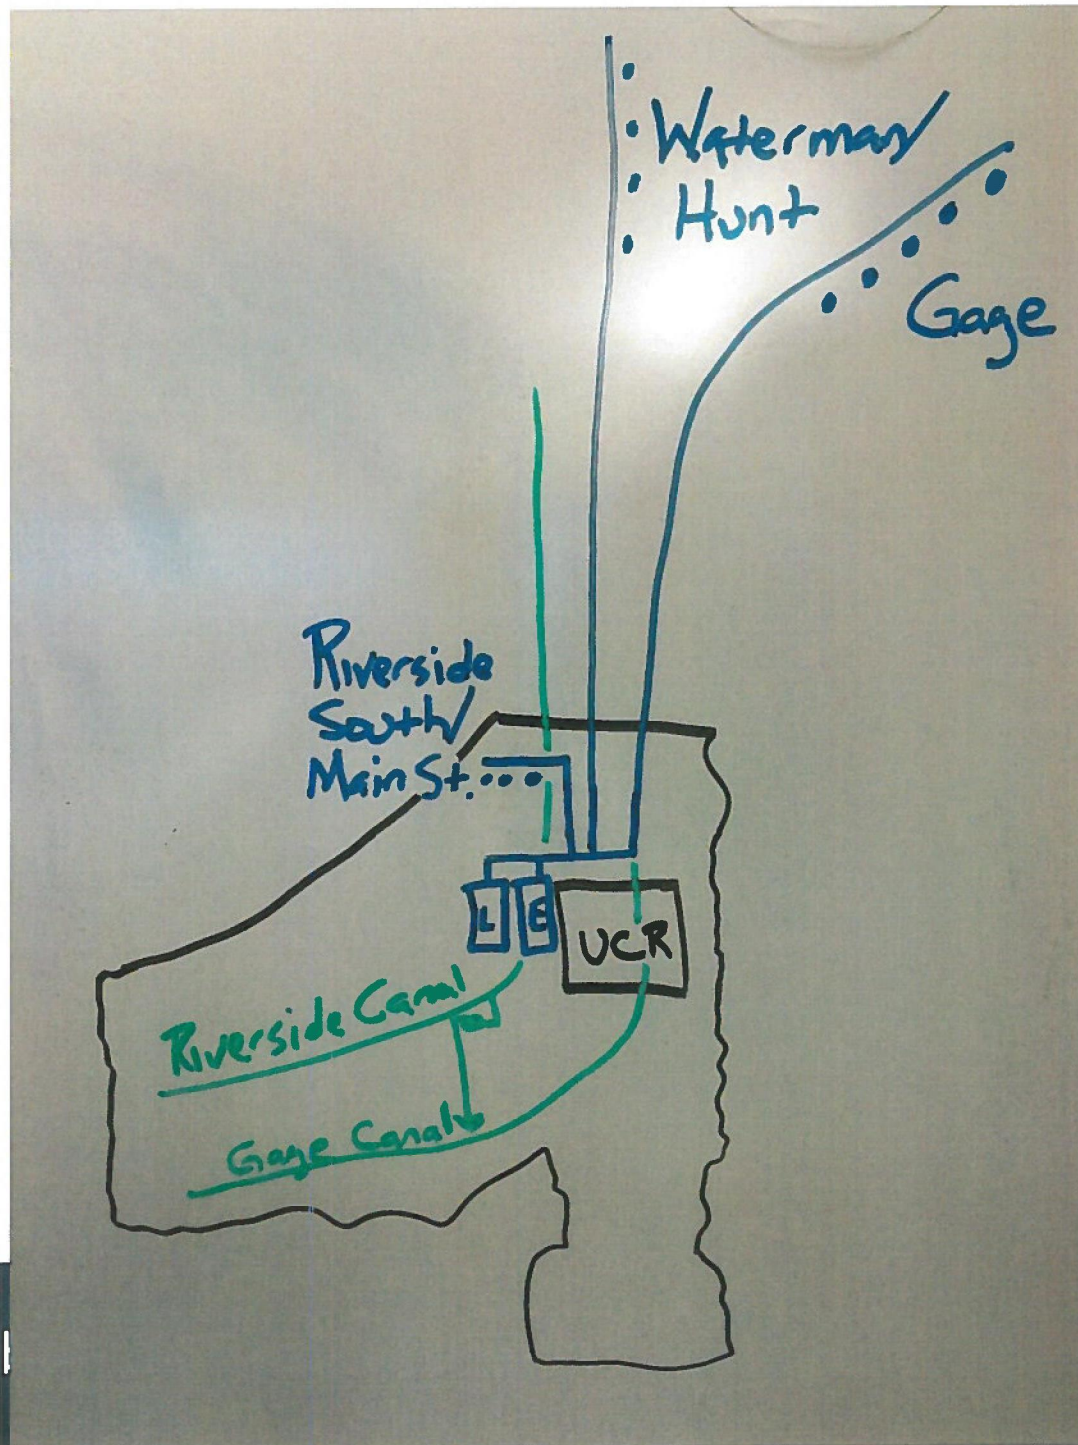 Waterman/
Hunt
Gage
Riverside
South/
Main St.
L
E
UCR
Riverside Canal
Gage Canal